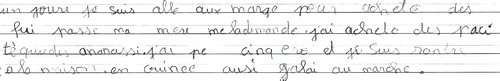 un joure je suis allé aux marge pour acheté des
fui passe ma mere me ladmande. j'ai acheté des paci
tiquedes ananassi. j'ai pe cinq ero et je suis rontré
a la maison. en ouinee ausi galai au marche.